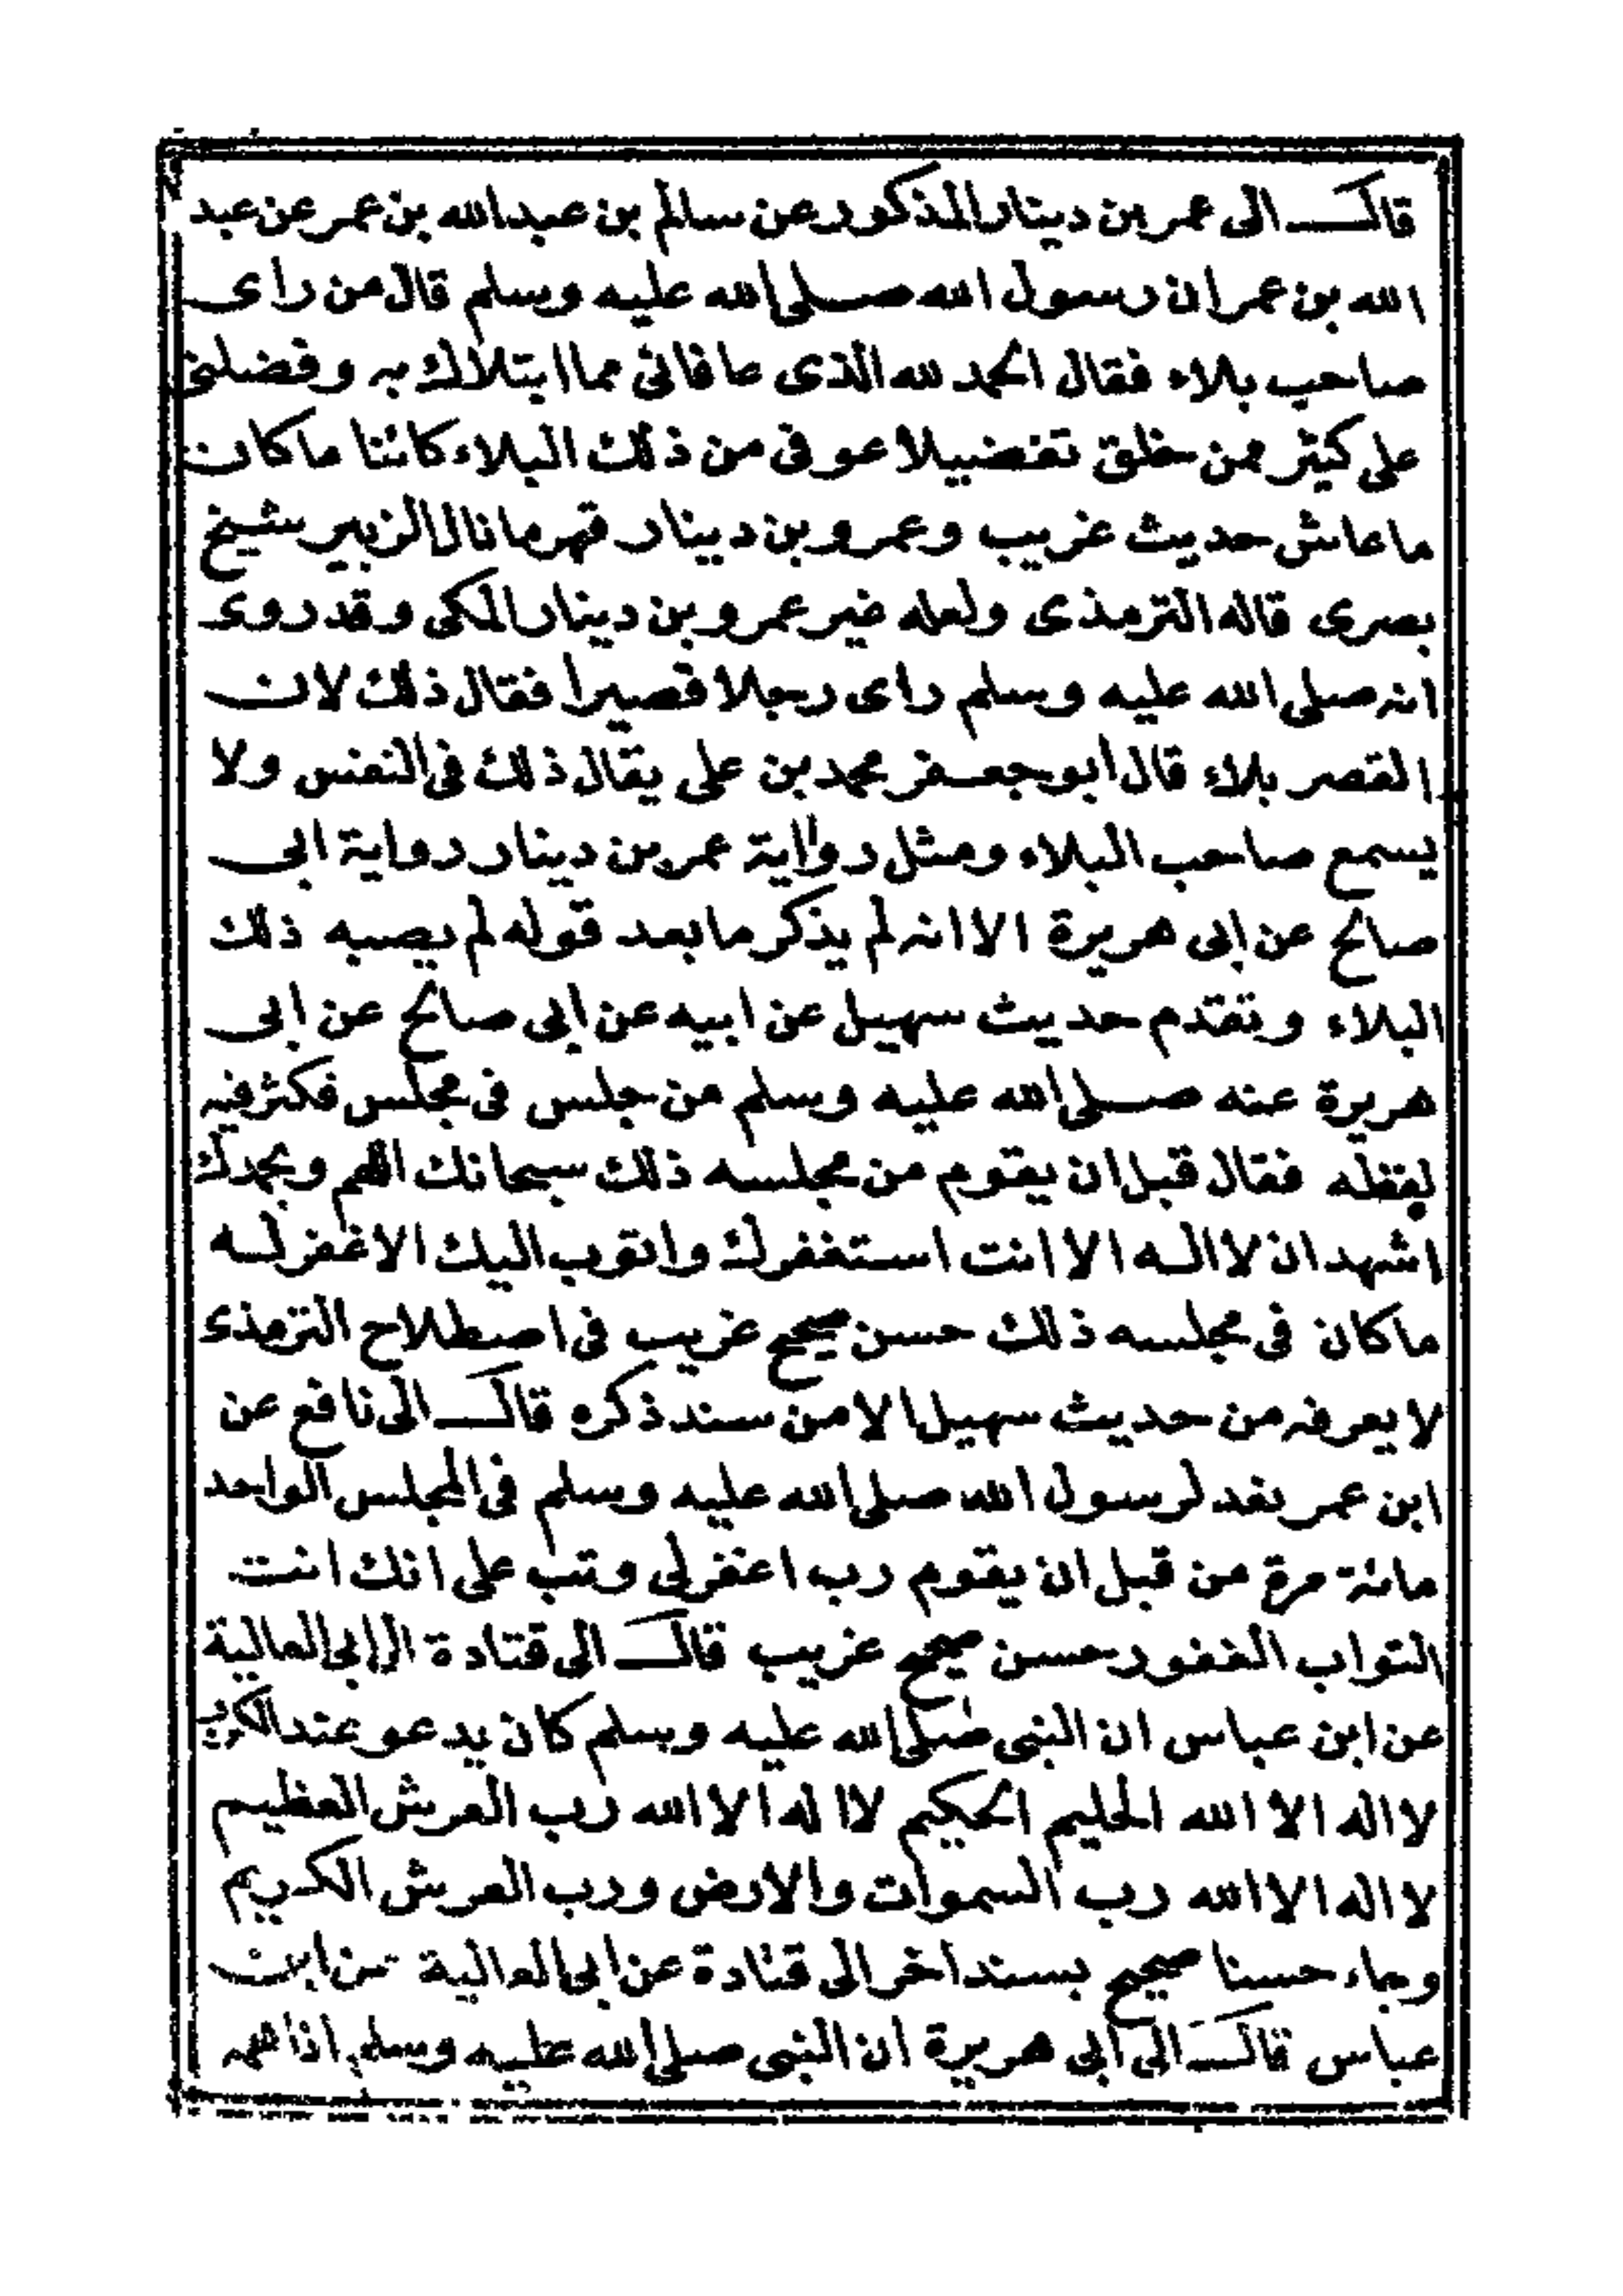 قال الى عمر بن دينار المذكور عن سالم بن عبد الله بن عمر عن عبد
الله بن عمر ان رسول الله صلى الله عليه وسلم قال من راى
صاحب بلاء فقال الحمد لله الذى عافانى مما ابتلاك به وفضلنى
على كثير ممن خلق تفضيلا عوفى من ذلك البلاء كائنا ما كان
ما عاش حديث غريب وعمرو بن دينار قهرمانال الزبير شيخ
بصرى قاله الترمذى ولعله غير عمرو بن دينار المكى وقد روى
انه صلى الله عليه وسلم راى رجلا قصيرا فقال ذلك لان
القصر بلاء قال ابو جعفر محمد بن على يقال ذلك فى النفس ولا
يسمع صاحب البلاء ومثل رواية عمر بن دينار رواية ابى
صالح عن ابى هريرة الا انه لم يذكر ما بعد قوله لم يصبه ذلك
البلاء وتقدم حديث سهيل عن ابيه عن ابى صالح عن ابى
هريرة عنه صلى الله عليه وسلم من جلس فى مجلس فكثر فيه
لغظه فقال قبل ان يقوم من مجلسه ذلك سبحانك اللهم وبحمدك
اشهد ان لا اله الا انت استغفرك واتوب اليك الا غفر له
ما كان فى مجلسه ذلك حسن صحيح غريب فى اصطلاح الترمذى
لا يعرفه من حديث سهيل الا من سند ذكره قال الى نافع عن
ابن عمر نعد لرسول الله صلى الله عليه وسلم فى المجلس الواحد
مائة مرة من قبل ان يقوم رب اغفر لى وتب على انك انت
التواب الغفور حسن صحيح غريب قال الى قتادة الى ابى العالية
عن ابن عباس ان النبى صلى الله عليه وسلم كان يدعو عند الكرب
لا اله الا الله الحليم الحكيم لا اله الا الله رب العرش العظيم
لا اله الا الله رب السموات والارض ورب العرش الكريم
وجاء حسنا صحيح بسند اخر الى قتادة عن ابى العالية عن ابن
عباس قال الى ابى هريرة ان النبى صلى الله عليه وسلم اذا همه